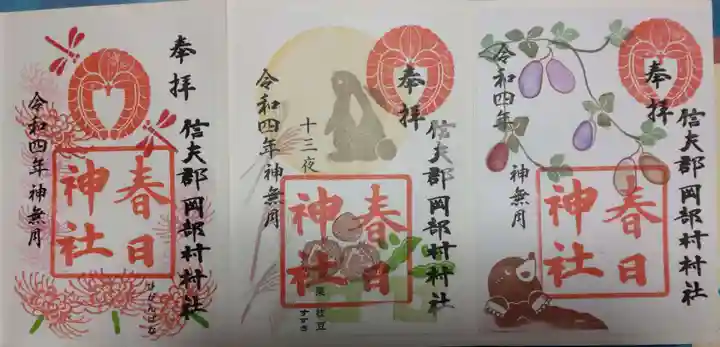 奉拝
信夫郡岡部村村社
春日
神社
令和四年神無月
ひがんばな
奉拝
信夫郡岡部村村社
春日
神社
十三夜
令和四年神無月
栗 枝豆
すすき
奉拝
信夫郡岡部村村社
春日
神社
令和四年
神無月